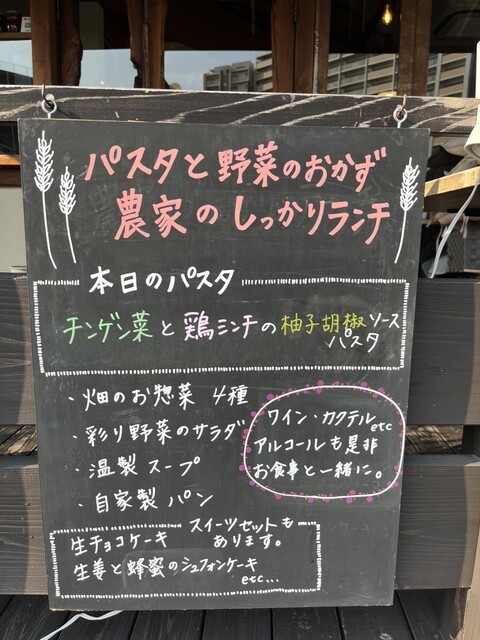 パスタと野菜のおかず
農家のしっかりランチ
本日のパスタ
チンゲン菜と鶏ミンチの柚子胡椒ソース
パスタ
・畑のお惣菜 4種
・彩り野菜のサラダ
・温製スープ
・自家製パン
ワイン・カクテル
etc
アルコールも是非
お食事と一緒に。
スイーツセットも
あります。
生チョコケーキ
生姜と蜂蜜のシュフォンケーキ
etc...